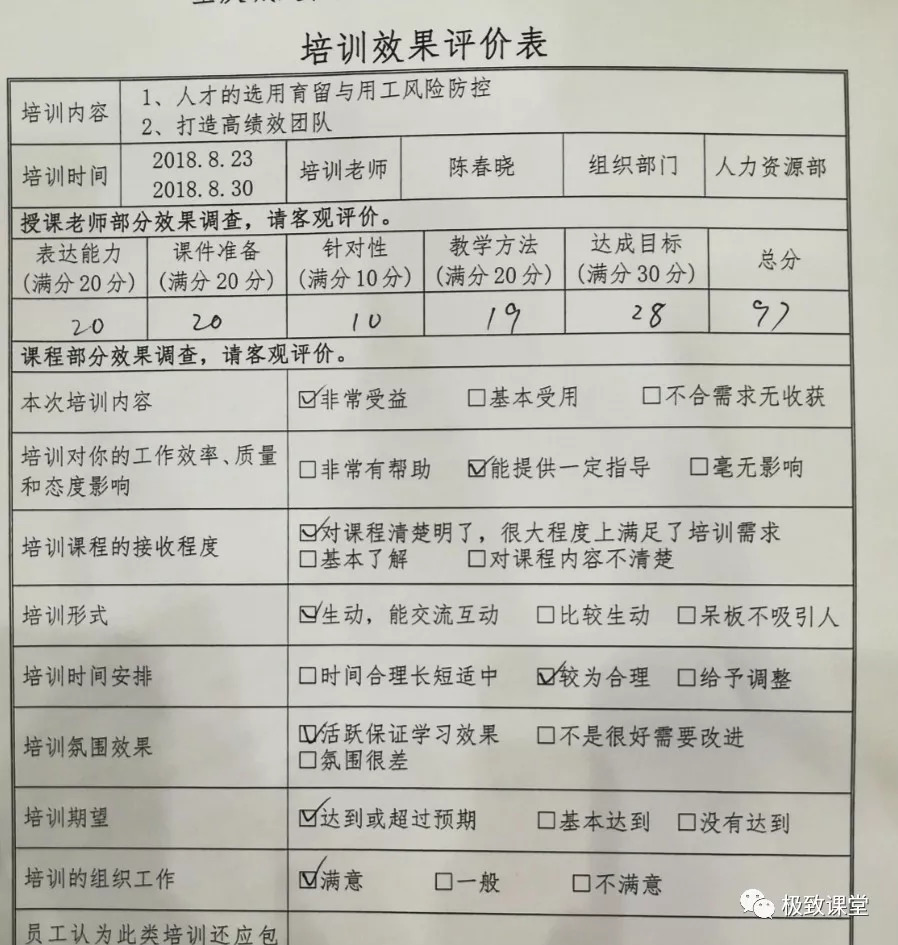 培训效果评价表
培训内容
1、人才的选用育留与用工风险防控
2、打造高绩效团队
培训时间
2018.8.23
2018.8.30
培训老师
陈春晓
组织部门
人力资源部
授课老师部分效果调查，请客观评价。
表达能力
(满分20分)
课件准备
(满分20分)
针对性
(满分10分)
教学方法
(满分20分)
达成目标
(满分30分)
总分
20
20
10
19
28
97
课程部分效果调查，请客观评价。
本次培训内容
☑非常受益 □基本受用 □不合需求无收获
培训对你的工作效率、质量
和态度影响
□非常有帮助 ☑能提供一定指导 □毫无影响
培训课程的接收程度
☑对课程清楚明了，很大程度上满足了培训需求
□基本了解 □对课程内容不清楚
培训形式
☑生动，能交流互动 □比较生动 □呆板不吸引人
培训时间安排
□时间合理长短适中 ☑较为合理 □给予调整
培训氛围效果
☑活跃保证学习效果 □不是很好需要改进
□氛围很差
培训期望
☑达到或超过预期 □基本达到 □没有达到
培训的组织工作
☑满意 □一般 □不满意
员工认为此类培训还应包
极致课堂